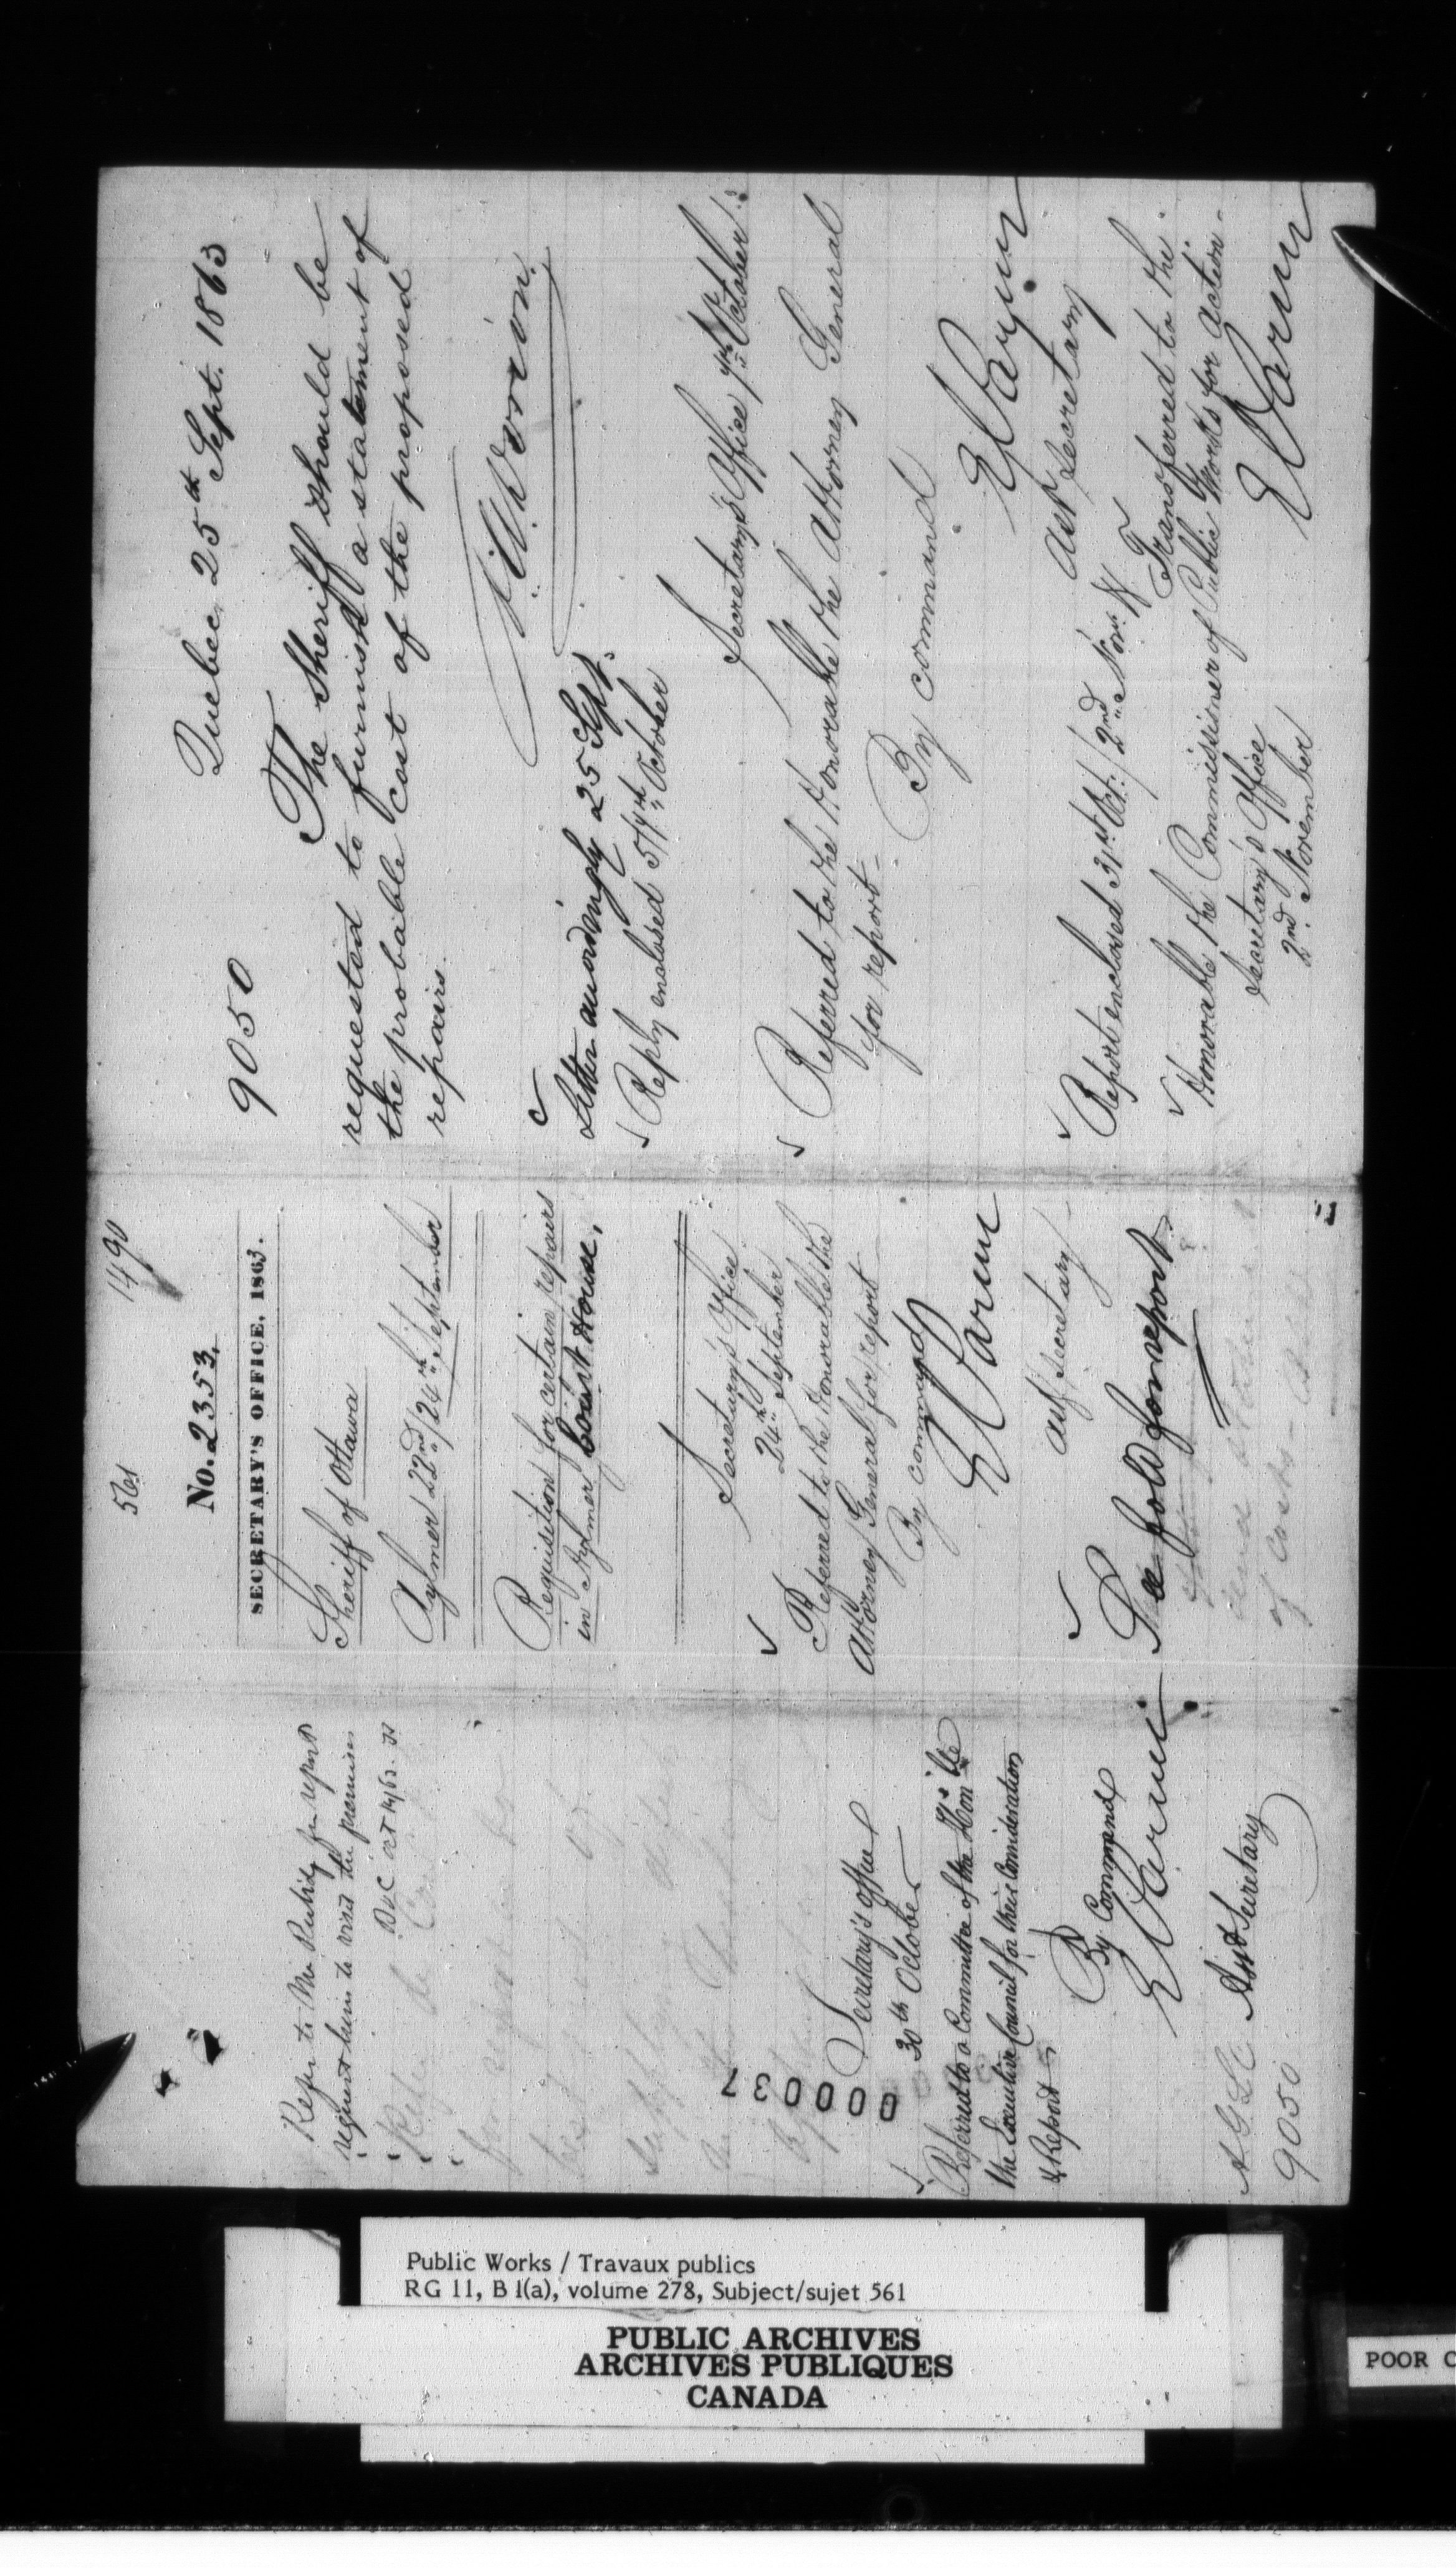 Refer to Mr Rubidge for report
request him to visit the premises
Oct
Secretary's office
30th October
Referred to a Committee of the Hon'ble
the Executive Council for their Consideration
& Report
By Command
E Parent
Asst Secretary
A G L C
9050
000037
561
1490
No. 2353.
SECRETARY'S OFFICE, 1863.
Sheriff of Ottawa
Aylmer 22nd/24th September
Requisition for certain repairs
in Aylmer Court House.
Secretary's Office
24th September
Referred to the Honorable the
Attorney General for report
By command
E Parent
asst Secretary
See fold for report
of Costs
9050
Quebec 25th Sept. 1863
The Sheriff should be
requested to furnish a statement of
the probable cost of the proposed
repairs.
Letter accordingly 25 Sept.
Reply enclosed 5/7th October
Secretary's Office 7th October
Referred to the Honorable the Attorney General
for report
By command
E Parent
asst Secretary
Report enclosed 31st Oct. / 2nd Novr.
Transferred to the
Honorable the Commissioner of Public Works for action.
Secretary's Office
2nd November
E Parent
Public Works / Travaux publics
RG 11, B 1(a), volume 278, Subject/sujet 561
PUBLIC ARCHIVES
ARCHIVES PUBLIQUES
CANADA
POOR